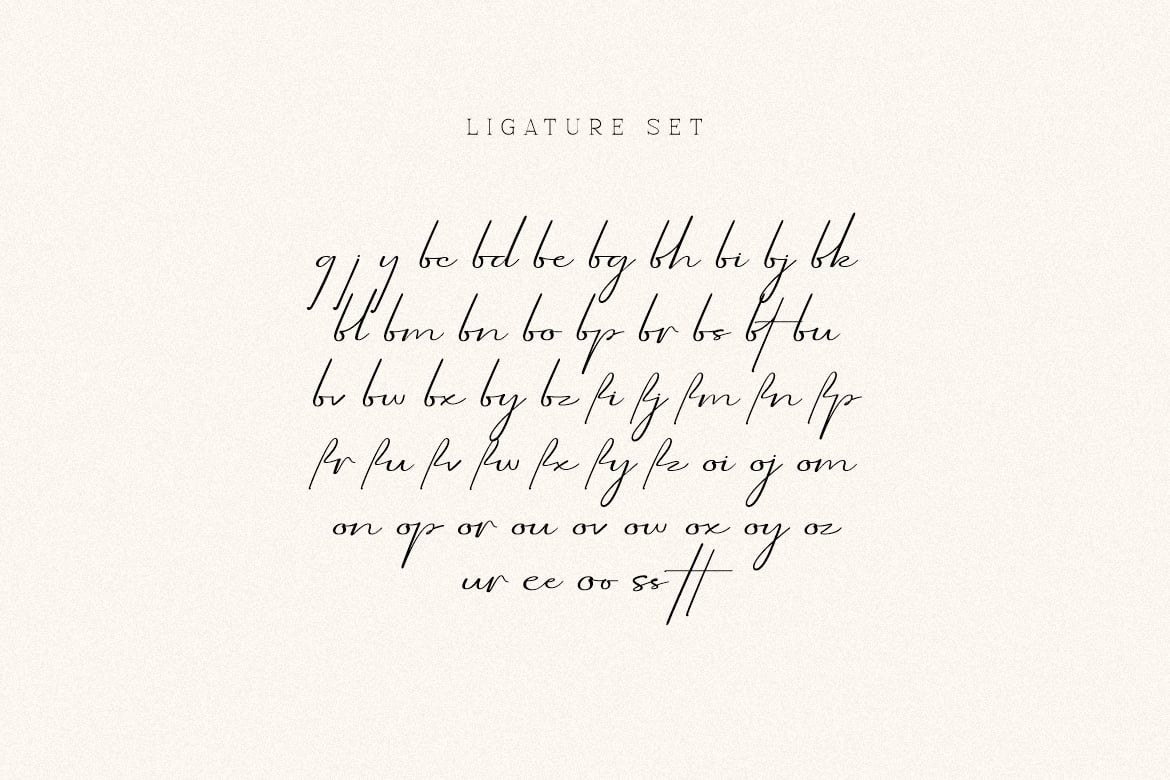 LIGATURE SET
g j y bc bd be bg bh bi bj bk
bl bm bn bo bp br bs bt bu
bv bw bx by bz fi fj fm fn fp
fr fu fv fw fx fy fz oi oj om
on op or ou ov ow ox oy oz
ur ee oo ss tt